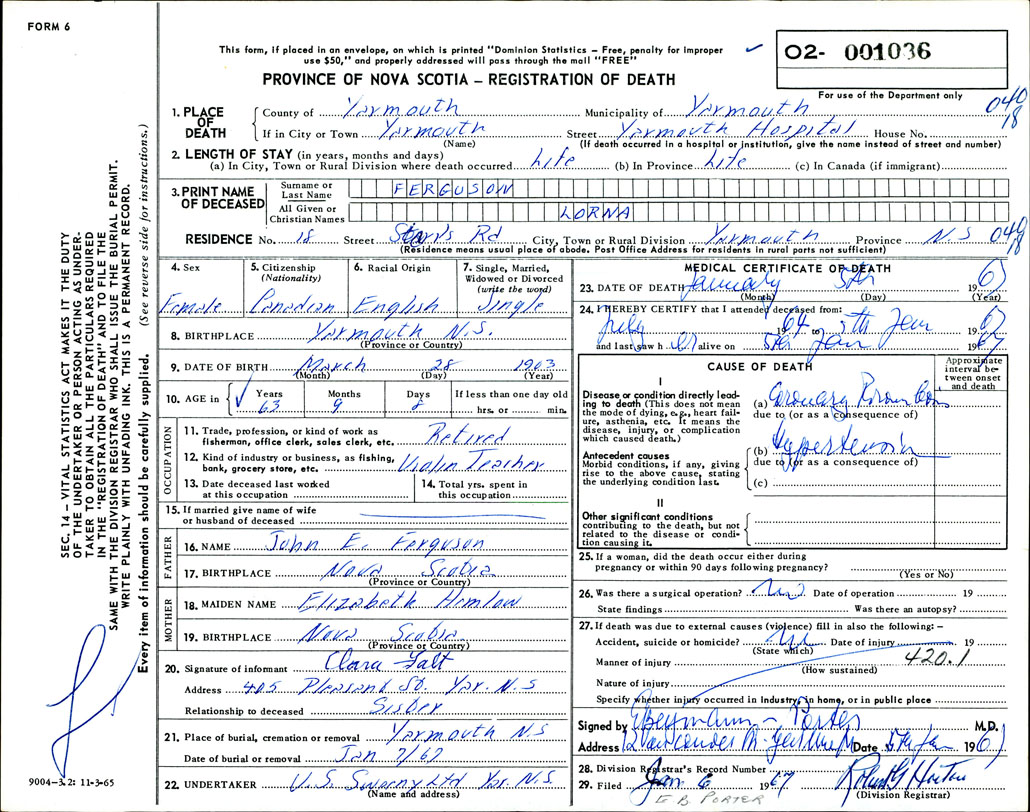 FORM 6
This form, if placed in an envelope, on which is printed "Dominion Statistics – Free, penalty for improper
use $50," and properly addressed will pass through the mail "FREE"
02- 001036
PROVINCE OF NOVA SCOTIA – REGISTRATION OF DEATH
For use of the Department only
1. PLACE OF DEATH
County of Yarmouth Municipality of Yarmouth 040 18
If in City or Town Yarmouth Street Yarmouth Hospital House No.
(Name) (If death occurred in a hospital or institution, give the name instead of street and number)
2. LENGTH OF STAY (in years, months and days)
(a) In City, Town or Rural Division where death occurred Life (b) In Province Life (c) In Canada (if immigrant)
3. PRINT NAME OF DECEASED
Surname or Last Name FERGUSON
All Given or Christian Names LORNA
RESIDENCE No. 18 Street Starrs Rd City, Town or Rural Division Yarmouth Province N.S 040 18
(Residence means usual place of abode. Post Office Address for residents in rural parts not sufficient)
4. Sex
Female
5. Citizenship
(Nationality)
Canadian
6. Racial Origin
English
7. Single, Married,
Widowed or Divorced
(write the word)
Single
8. BIRTHPLACE Yarmouth N.S.
(Province or Country)
9. DATE OF BIRTH March 28 1903
(Month) (Day) (Year)
10. AGE in Years Months Days If less than one day old
63 9 8 hrs. or min.
OCCUPATION
11. Trade, profession, or kind of work as
fisherman, office clerk, sales clerk, etc. Retired
12. Kind of industry or business, as fishing,
bank, grocery store, etc. Violin Teacher
13. Date deceased last worked
at this occupation
14. Total yrs. spent in
this occupation
15. If married give name of wife
or husband of deceased
FATHER
16. NAME John E. Ferguson
17. BIRTHPLACE Nova Scotia
(Province or Country)
MOTHER
18. MAIDEN NAME Elizabeth Hemlow
19. BIRTHPLACE Nova Scotia
(Province or Country)
20. Signature of informant Clara Galt
Address 405 Pleasant St. Yar. N.S
Relationship to deceased Sister
21. Place of burial, cremation or removal Yarmouth N.S
Date of burial or removal Jan 7/67
22. UNDERTAKER V.S. Sweeny Ltd Yar. N.S
(Name and address)
MEDICAL CERTIFICATE OF DEATH
23. DATE OF DEATH January 5th 1967
(Month) (Day) (Year)
24. I HEREBY CERTIFY that I attended deceased from:
July 1964 to 5th Jan 1967
and last saw her alive on 5th Jan 1967
CAUSE OF DEATH
Approximate
interval be-
tween onset
and death
I
Disease or condition directly lead-
ing to death (This does not mean
the mode of dying, e.g., heart fail-
ure, asthenia, etc. It means the
disease, injury, or complication
which caused death.)
(a) Coronary Thrombosis
due to (or as a consequence of)
Antecedent causes
Morbid conditions, if any, giving
rise to the above cause, stating
the underlying condition last.
(b) Hypertension
due to (or as a consequence of)
(c)
II
Other significant conditions
contributing to the death, but not
related to the disease or condi-
tion causing it.
25. If a woman, did the death occur either during
pregnancy or within 90 days following pregnancy?
(Yes or No)
26. Was there a surgical operation? No Date of operation 19
State findings Was there an autopsy?
27. If death was due to external causes (violence) fill in also the following: –
Accident, suicide or homicide? Date of injury 19
(State which)
Manner of injury 420.1
(How sustained)
Nature of injury
Specify whether injury occurred in industry, in home, or in public place
Signed by M.D.
Address Date 5th Jan 1967
28. Division Registrar's Record Number
29. Filed Jan 6 1967
(Division Registrar)
E B PORTER
SEC. 14 – VITAL STATISTICS ACT MAKES IT THE DUTY
OF THE UNDERTAKER OR PERSON ACTING AS UNDER-
TAKER TO OBTAIN ALL THE PARTICULARS REQUIRED
IN THE "REGISTRATION OF DEATH" AND TO FILE THE
SAME WITH THE DIVISION REGISTRAR WHO SHALL ISSUE THE BURIAL PERMIT.
WRITE PLAINLY WITH UNFADING INK. THIS IS A PERMANENT RECORD.
Every item of information should be carefully supplied. (See reverse side for instructions.)
9004–3.2: 11-3-65